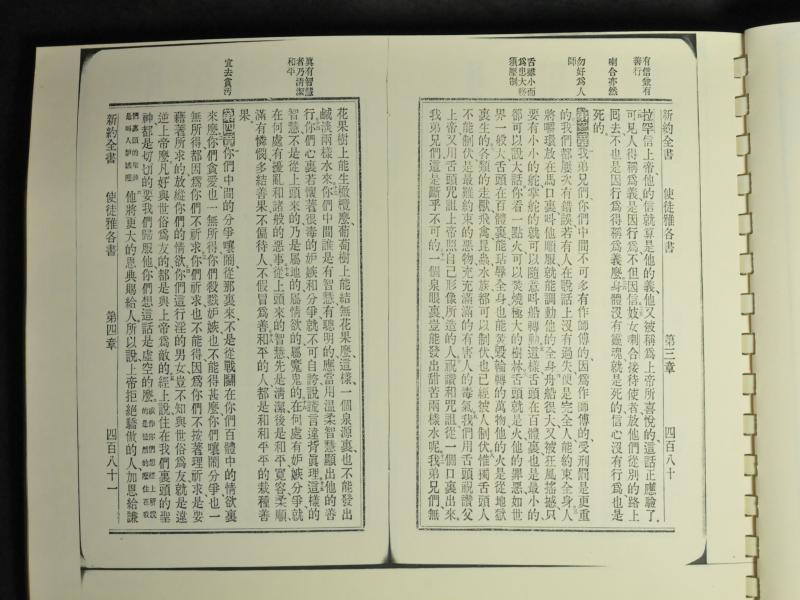 新約全書　使徒雅各書　第三章　四百八十
有信兼有
善行
喇合亦然
勿好爲人
師
舌雖小而
爲患大務
須壓制
拉罕信上帝他的信就算是他的義他又被稱爲上帝所喜悅的這話正應驗了
可見人得稱爲義是因行爲不但因信妓女喇合接待使者放他們從別的路上
囘去不也是因行爲得稱爲義麽身體沒有靈魂就是死的信心沒有行爲也是
死的
第三章我弟兄們你們中間不可多有作師傅的因爲作師傅的受刑罰是更重
的我們都屢次有錯誤若有人在說話上沒有過失便是完全人能約束全身人
將嚼環放在馬口裏呌他順服就能調動他的全身舟船很大又被狂風搖撼只
要有小小的舵掌舵的就可以隨意呌船轉動這樣舌頭在百體裏也是最小的
都可以說大話你看一點火可以焚燒極大的樹林舌頭就是火他的罪惡如世
界一般大舌頭在百體裏能玷辱全身也能焚毀輪轉的萬物他的火是從地獄
裏生的各類的走獸飛禽昆蟲水族都可以制伏也已經被人制伏惟獨舌頭人
不能制伏是最難約束的惡物充滿滿的有害人的毒氣我們用舌頭祝讚父
上帝又用舌頭咒詛上帝照自己形像所造的人祝讚和咒詛從一個口裏出來
我弟兄們這是斷乎不可的一個泉眼裏豈能發出甜苦兩樣水呢我弟兄們無
花果樹上能生橄欖麽葡萄樹上能結無花果麽這樣一個泉源裏也不能發出
鹹淡兩樣水來你們中間誰是有智慧有聰明的應當用溫柔智慧顯出他的善
行你們心裏若懷著很毒的嫉妬和分爭就不可自誇說謊言違背眞理這樣的
智慧不是從上頭來的乃是屬地的屬情欲的屬魔鬼的在何處有嫉妬分爭就
在何處有擾亂和諸般的惡事從上頭來的智慧先是清潔後是和平寬容柔順
滿有憐憫多結善果不偏待人不假冒爲善和平的人都是和和平平的栽種善
果
第四章你們中間的分爭嚷鬧從那裏來不是從戰鬬在你們百體中的情欲裏
來麽你們貪愛也一無所得你們殺戮嫉妬也不能得甚麽你們嚷鬧分爭也一
無所得都因爲你們不祈求你們祈求也不能得因爲你們不按著理祈求是要
藉著所求的放縱你們的情欲你們這行淫的男女豈不知與世俗爲友就是違
逆上帝麽凡好與世俗爲友的都是與上帝爲敵的經上說住在我們裏頭的聖
神都是切切的要我們歸服他你們想這話是虛空的麽
他將更大的恩典賜給人所以說上帝拒絕驕傲的人加恩給謙
眞有智慧
者乃清潔
和平
宜去貪污
新約全書　使徒雅各書　第四章　四百八十一